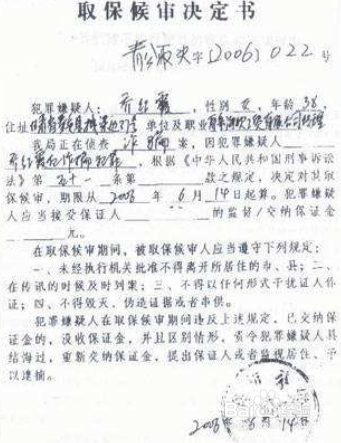 取保候审决定书
字[2006]022号
犯罪嫌疑人: 性别 女, 年龄 38,
住址 单位及职业
我局正在侦查 诈骗 案,因犯罪嫌疑人
,根据《中华人民共和国刑事诉讼
法》第五十一条第 款之规定,决定对其取
保候审,期限从2006年6月14日起算。犯罪嫌疑
人应当接受保证人 的监督/交纳保证金
元。
在取保候审期间,被取保候审人应当遵守下列规定:
一、未经执行机关批准不得离开所居住的市、县;二、
在传讯的时候及时到案;三、不得以任何形式干扰证人作
证;四、不得毁灭、伪造证据或者串供。
犯罪嫌疑人在取保候审期间违反上述规定,已交纳保
证金的,没收保证金,并且区别情形,责令犯罪嫌疑人具
结悔过,重新交纳保证金,提出保证人或者监视居住、予
以逮捕。
2006年6月14日